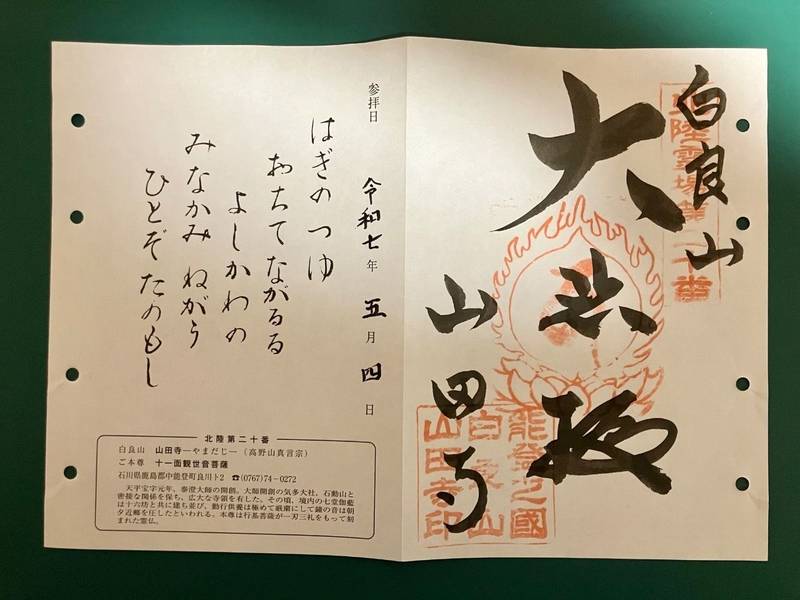 北陸霊場第二十番
白良山
大悲殿
山田寺
能登之國
白良山
山田寺印
参拝日 令和七年五月四日
はぎのつゆ
おちてながるる
よしかわの
みなかみねがう
ひとぞたのもし
北陸第二十番
白良山 山田寺―やまだじ―（高野山真言宗）
ご本尊 十一面観世音菩薩
石川県鹿島郡中能登町良川ト2 ☎(0767)74-0272
天平宝字元年、泰澄大師の開創。大師開創の気多大社、石動山と
密接な関係を保ち、広大な寺領を有した。その頃、境内の七堂伽藍
は十六坊と共に建ち並び、勤行供養は極めて厳粛にして鐘の音は朝
夕近郷を圧したといわれる。本尊は行基菩薩が一刃三礼をもって刻
まれた霊仏。